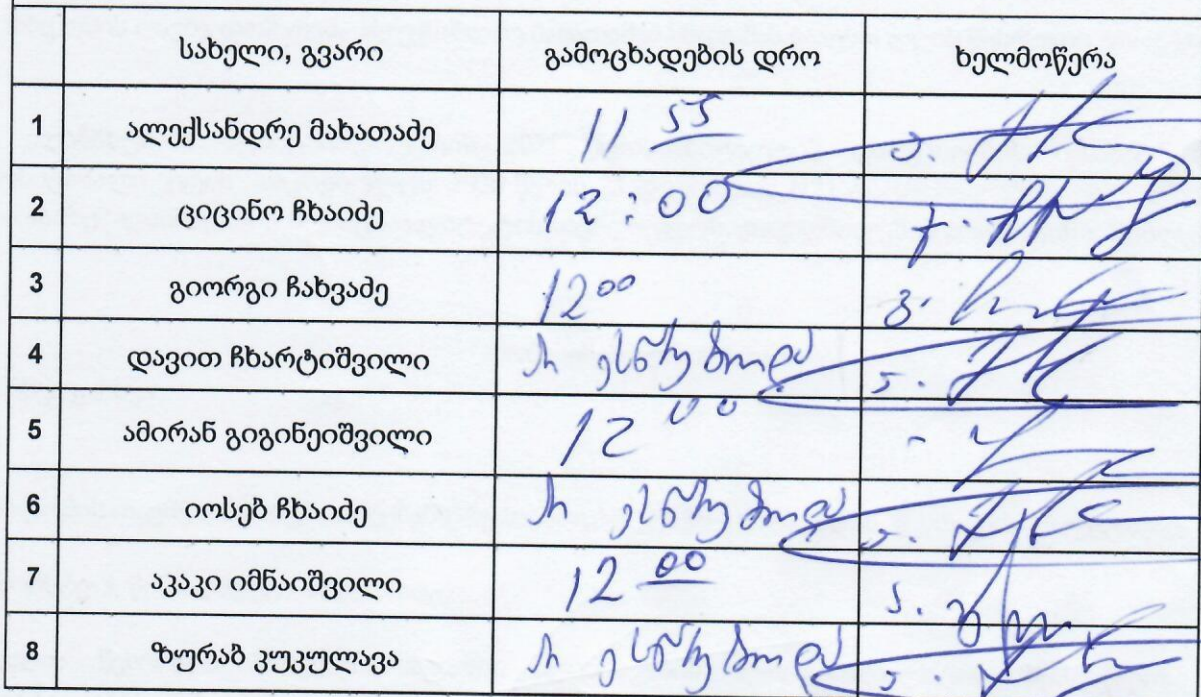 სახელი, გვარი გამოცხადების დრო ხელმოწერა
1 ალექსანდრე მახათაძე 11 55
2 ციცინო ჩხაიძე 12:00
3 გიორგი ჩახვაძე 12 00
4 დავით ჩხარტიშვილი არ ესწრებოდა
5 ამირან გიგინეიშვილი 12 00
6 იოსებ ჩხაიძე არ ესწრებოდა
7 აკაკი იმნაიშვილი 12 00
8 ზურაბ კუკულავა არ ესწრებოდა